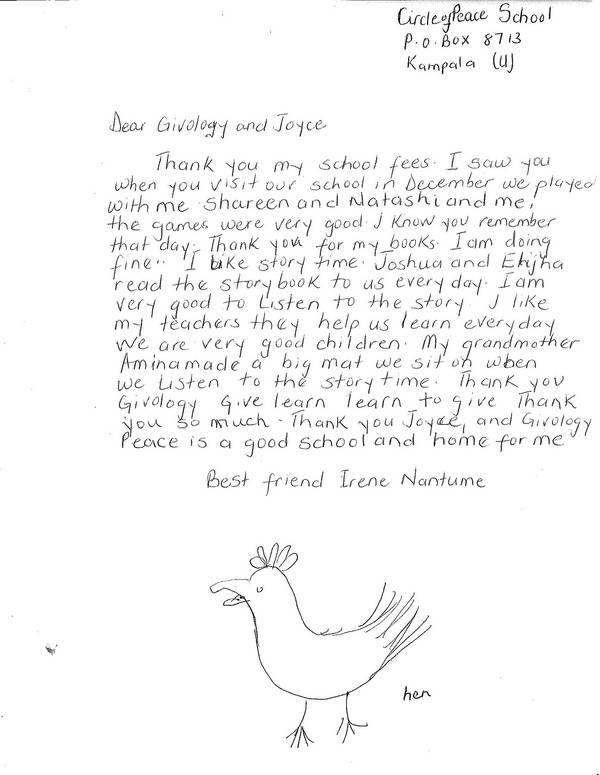 Circle of Peace School
P.O.Box 8713
Kampala (U)
Dear Givology and Joyce
Thank you my school fees. I saw you
when you visit our school in December we played
with me Shareen and Natashi and me,
the games were very good. I know you remember
that day. Thank you for my books. I am doing
fine.. I like story time. Joshua and
read the storybook to us every day. I am
very good to Listen to the story. I like
my teachers they help us learn everyday
We are very good children. My grandmother
Amina made a big mat we sit on when
we Listen to the story time. Thank you
Givology Give learn learn to give Thank
you so much. Thank you Joyce, and Givology
Peace is a good school and home for me
Best friend Irene Nantume
hen